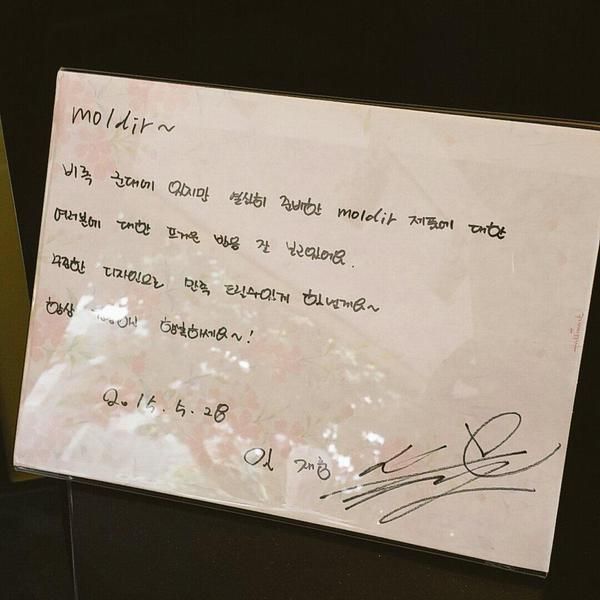 moldir~
비록 군대에 있지만 열심히 준비한 moldir 제품에 대한
여러분에 대한 뜨거운 반응 잘 보고있어요.
디자인으로 만족 드릴수있게 할게요~
항상 행복하세요~!
2015.5.28
재중